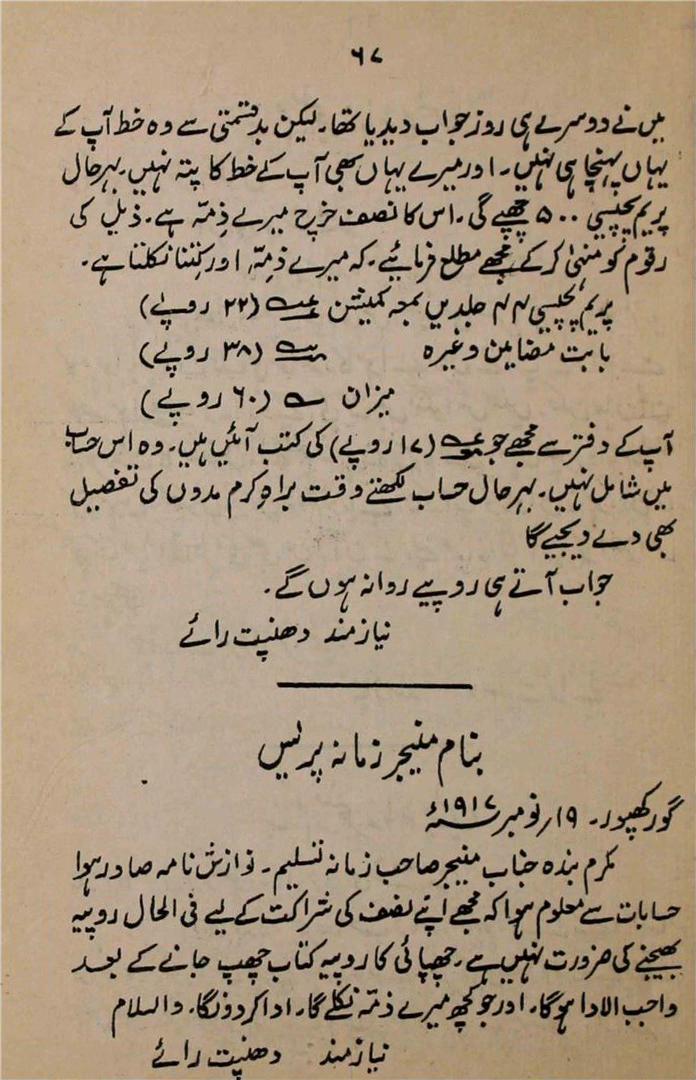 ۶۷
میں نے دوسرے ہی روز جواب دیدیا تھا۔ لیکن بدقسمتی سے وہ خط آپ کے
یہاں پہنچا ہی نہیں۔ اور میرے یہاں بھی آپ کے خط کا پتہ نہیں۔ بہرحال
پریم پچیسی ۵۰۰ چھپے گی۔ اس کا نصف خرچ میرے ذمّہ ہے۔ ذیل کی
رقوم کو منہیٰ کر کے مجھے مطلع فرمائیے۔ کہ میرے ذمّہ اور کتنا نکلتا ہے۔
پریم پچیسی ۴۴ جلدیں بمجہ کمیشن (۲۲ روپے)
بابت مضامین وغیرہ (۳۸ روپے)
میزان (۶۰ روپے)
آپ کے دفتر سے مجھے جو (۱۷ روپے) کی کتب آئیں ہیں۔ وہ اس حساب
میں شامل نہیں۔ بہرحال حساب لکھتے وقت براہِ کرم مدوں کی تفصیل
بھی دے دیجیے گا
جواب آتے ہی روپیے روانہ ہوں گے۔
نیازمند دھنپت رائے
بنام منیجر زمانہ پریس
گورکھپور۔ ۱۹؍ نومبر ۱۹۱۷ء
مکرم بندہ جناب منیجر صاحب زمانہ تسلیم۔ نوازش نامہ صادر ہوا
حسابات سے معلوم ہوا کہ مجھے اپنے نصف کی شراکت کے لیے فی الحال روپیہ
بھیجنے کی ضرورت نہیں ہے۔ چھپائی کا روپیہ کتاب چھپ جانے کے بعد
واجب الادا ہوگا۔ اور جو کچھ میرے ذمّہ نکلے گا۔ ادا کردونگا۔ والسلام
نیازمند دھنپت رائے